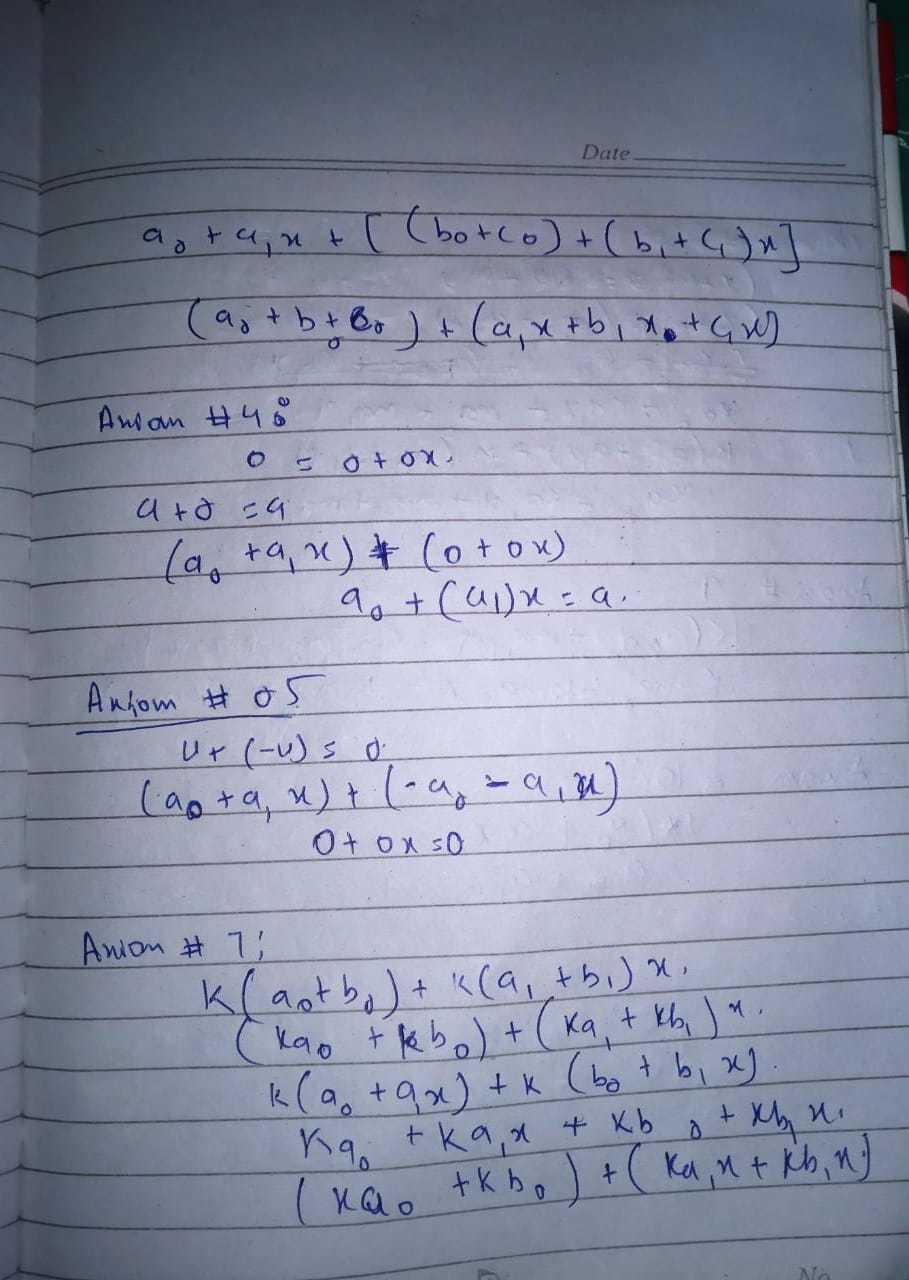 Date
a₀ + a₁x + [(b₀+c₀) + (b₁+c₁)x]
(a₀ + b₀ + c₀) + (a₁x + b₁x + c₁x)
Axiom #4:
0 = 0 + 0x.
a + 0 = a
(a₀ + a₁x) + (0 + 0x)
a₀ + (a₁)x = a.
Axiom # 05
u + (-u) = 0.
(a₀ + a₁x) + (-a₀ - a₁x)
0 + 0x = 0
Axiom # 7;
K(a₀ + b₀) + K(a₁ + b₁)x.
(Ka₀ + kb₀) + (Ka₁ + Kb₁)x.
k(a₀ + a₁x) + k(b₀ + b₁x).
Ka₀ + Ka₁x + Kb₀ + Kb₁x.
(Ka₀ + Kb₀) + (Ka₁x + Kb₁x)
No